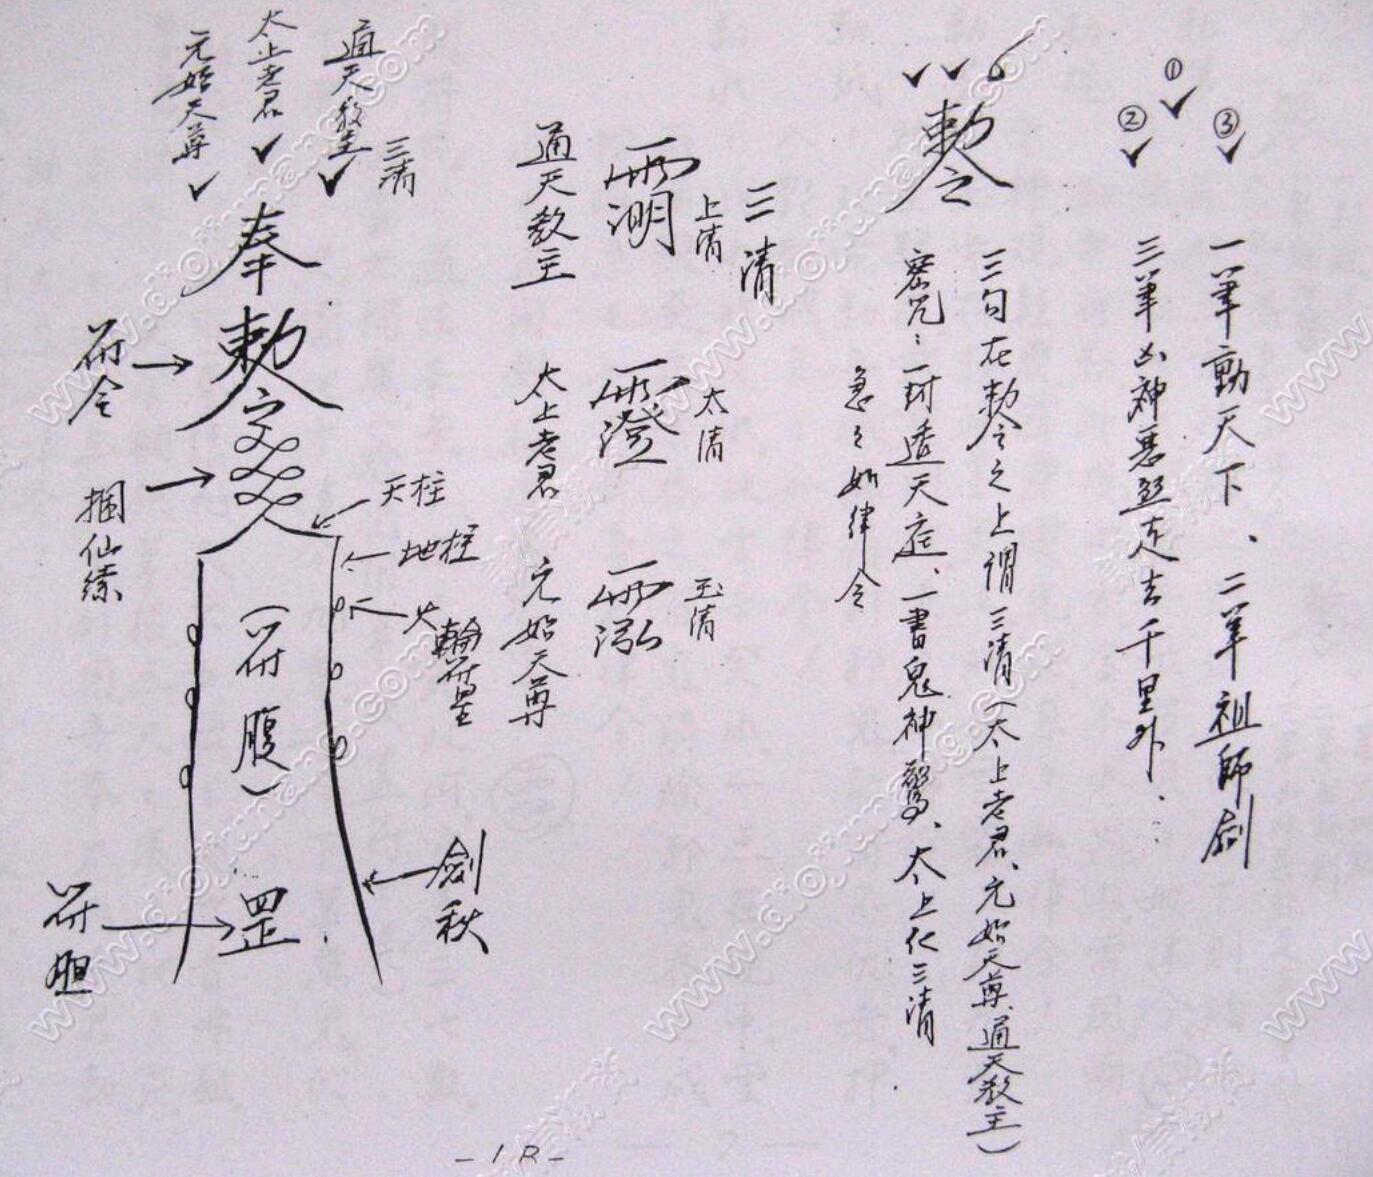 ①
②
③
一筆動天下、二筆祖師劍
三筆凶神惡煞走去千里外.
敕令
三勾在敕令之上謂三清(太上老君、元始天尊、通天教主)
密咒:一封透天庭、一書鬼神驚、太上化三清
急々如律令
三清
上清
太清
玉清
通天教主
太上老君
元始天尊
通天教主
三清
太上老君
元始天尊
奉
敕令
符令
捆仙索
天柱
地柱
火輪符星
(符腹)
劍秋
符胆
罡
-1R-